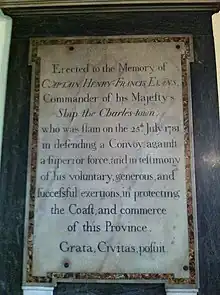 Erected to the Memory of
Captain Henry Francis Evans,
Commander of his Majesty's
Ship the Charles-town,
who was slain on the 25th July 1781
in defending a Convoy against
a superior force, and in testimony
of his voluntary, generous, and
successful exertions, in protecting
the Coast, and commerce
of this Province.
Grata, Civitas, posuit